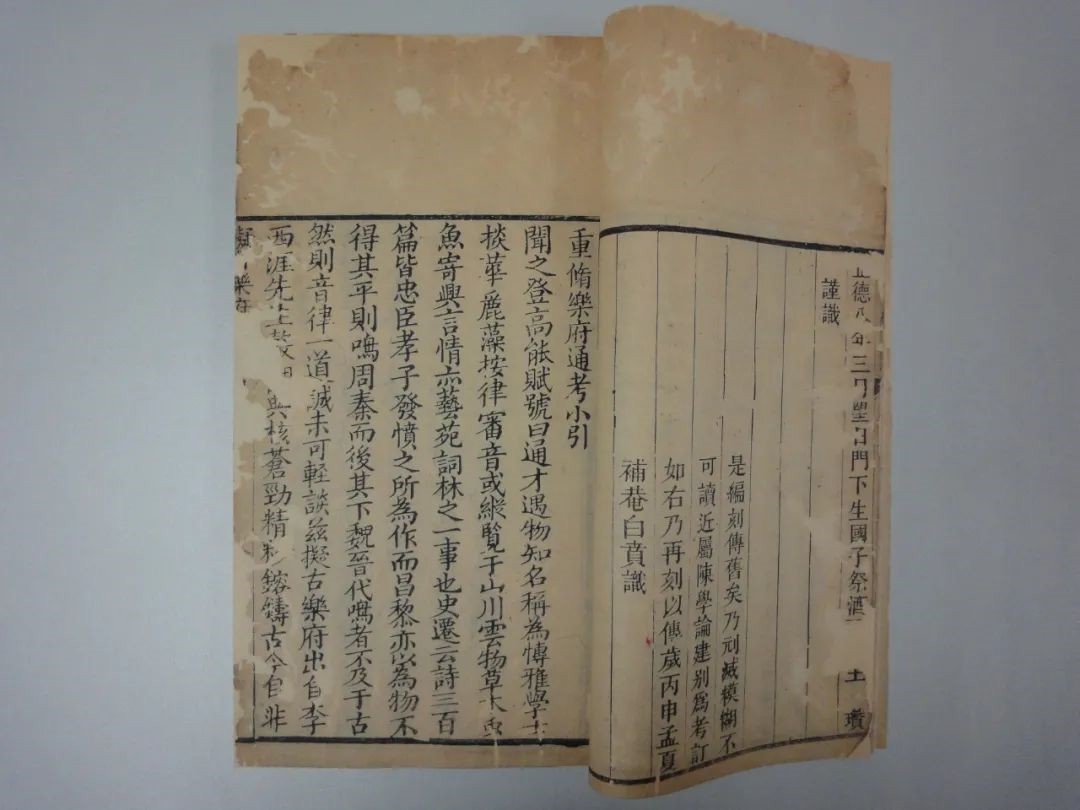 德年三月望日門下生國子祭酒 瓚
謹識
是編刻傳舊矣乃刓滅模糊不
可讀近屬陳學論建別爲考訂
如右乃再刻以傳歲丙申孟夏
補菴白賁識
重脩樂府通考小引
聞之登高能賦號曰通才遇物知名稱為愽雅學士
掞華麗藻按律審音或縱覽于山川雲物草木虫
魚寄興言情亦藝苑詞林之一事也史遷云詩三百
篇皆忠臣孝子發憤之所為作而昌黎亦以為物不
得其平則鳴周秦而後其下魏晉代鳴者不及于古
然則音律一道誠未可輕談茲擬古樂府出自李
西涯先生典核蒼勁精彩鎔鑄古今自非
樂府